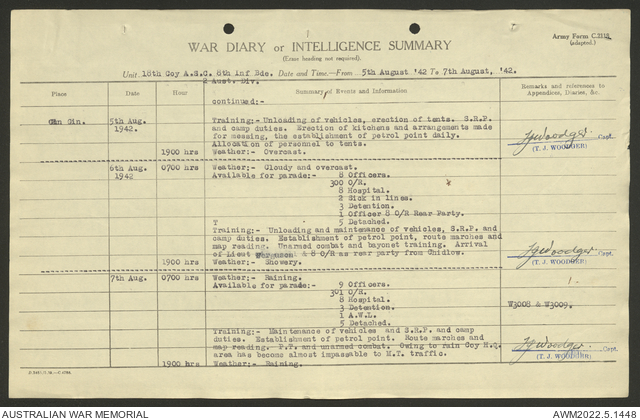 Army Form C.2118.
(adapted.)
WAR DIARY or INTELLIGENCE SUMMARY
(Erase heading not required).
Unit. 18th Coy A.S.C. 8th Inf Bde. Date and Time.—From 5th August '42 To 7th August, '42.
2 Aust. Div.
Place Date Hour Summary of Events and Information Remarks and references to Appendices, Diaries, &c.
continued:-
Gin Gin. 5th Aug. 1942. Training:- Unloading of vehicles, erection of tents. S.R.P.
and camp duties. Erection of kitchens and arrangements made
for messing, the establishment of petrol point daily.
Allocation of personnel to tents.
TJWoodger. Capt.
(T. J. WOODGER)
1900 hrs Weather:- Overcast.
6th Aug. 1942 0700 hrs Weather:- Cloudy and overcast.
Available for parade:- 8 Officers.
300 O/R.
8 Hospital.
2 Sick in lines.
3 Detention.
1 Officer 8 O/R Rear Party.
5 Detached.
T
Training:- Unloading and maintenance of vehicles, S.R.P. and
camp duties. Establishment of petrol point, route marches and
map reading. Unarmed combat and bayonet training. Arrival
of Lieut & 8 O/R as rear party from Chidlow.
TJWoodger. Capt.
(T. J. WOODGER)
1900 hrs Weather:- Showery.
7th Aug. 0700 hrs Weather:- Raining.
Available for parade:- 9 Officers.
301 O/R.
8 Hospital.
3 Detention.
1 A.W.L.
5 Detached.
W3008 & W3009.
Training:- Maintenance of vehicles and S.R.P. and camp
duties. Establishment of petrol point. Route marches and
map reading. P.T. and unarmed combat. Owing to rain Coy H.Q.
area has become almost impassable to M.T. traffic.
TJWoodger. Capt.
(T. J. WOODGER)
1900 hrs Weather:- Raining.
AUSTRALIAN WAR MEMORIAL
AWM2022.5.1448